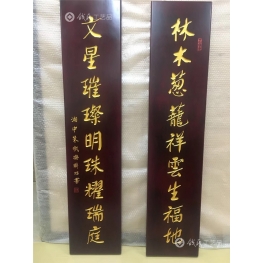 林木蔥蘢祥雲生福地
文星璀璨明珠耀瑞庭